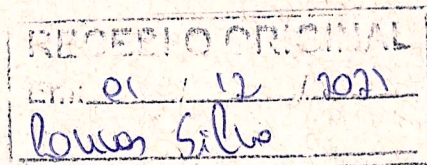 RECEBI O ORIGINAL
Em: 01 / 12 / 2021
Silva